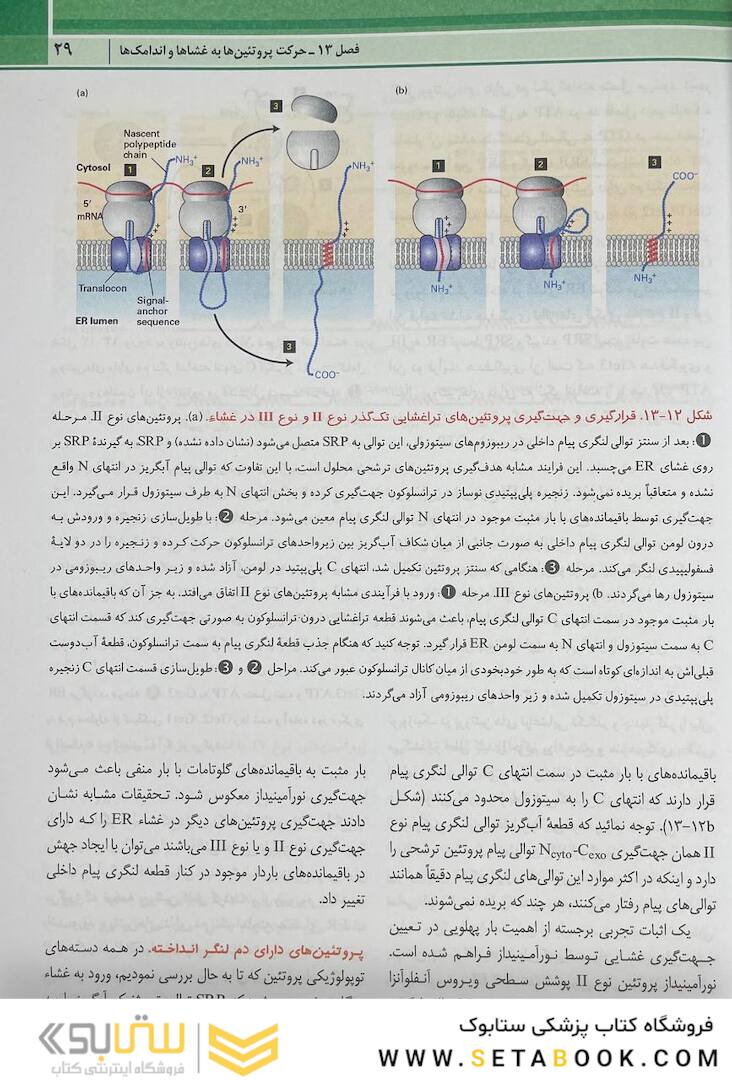 فصل ۱۳ ـ حرکت پروتئین‌ها به غشاها و اندامک‌ها
۲۹
(a)
Nascent
polypeptide
chain
NH3+
Cytosol
1
2
3
NH3+
NH3+
5′
mRNA
3′
Translocon
Signal-
anchor
sequence
ER lumen
3
COO-
(b)
1
2
3
COO-
NH3+
NH3+
NH3+
شکل ۱۲-۱۳. قرارگیری و جهت‌گیری پروتئین‌های تراغشایی تک‌گذر نوع II و نوع III در غشاء. (a). پروتئین‌های نوع II. مرحله
❶: بعد از سنتز توالی لنگری پیام داخلی در ریبوزوم‌های سیتوزولی، این توالی به SRP متصل می‌شود (نشان داده نشده) و SRP، به گیرندهٔ SRP بر
روی غشای ER می‌چسبد. این فرایند مشابه هدف‌گیری پروتئین‌های ترشحی محلول است، با این تفاوت که توالی پیام آبگریز در انتهای N واقع
نشده و متعاقباً بریده نمی‌شود. زنجیره پلی‌پپتیدی نوساز در ترانسلوکون جهت‌گیری کرده و بخش انتهای N به طرف سیتوزول قرار می‌گیرد. این
جهت‌گیری توسط باقیمانده‌های با بار مثبت موجود در انتهای N توالی لنگری پیام معین می‌شود. مرحله ❷: با طویل‌سازی زنجیره و ورودش به
درون لومن توالی لنگری پیام داخلی به صورت جانبی از میان شکاف آب‌گریز بین زیرواحدهای ترانسلوکون حرکت کرده و زنجیره را در دو لایهٔ
فسفولیپیدی لنگر می‌کند. مرحله ❸: هنگامی که سنتز پروتئین تکمیل شد، انتهای C پلی‌پپتید در لومن، آزاد شده و زیر واحدهای ریبوزومی در
سیتوزول رها می‌گردند. b) پروتئین‌های نوع III. مرحله ❶: ورود با فرآیندی مشابه پروتئین‌های نوع II اتفاق می‌افتد. به جز آن که باقیمانده‌های با
بار مثبت موجود در سمت انتهای C توالی لنگری پیام، باعث می‌شوند قطعه تراغشایی درون ترانسلوکون به صورتی جهت‌گیری کند که قسمت انتهای
C به سمت سیتوزول و انتهای N به سمت لومن ER قرار گیرد. توجه کنید که هنگام جذب قطعهٔ لنگری پیام به سمت ترانسلوکون، قطعهٔ آب‌دوست
قبلی‌اش به اندازه‌ای کوتاه است که به طور خودبخودی از میان کانال ترانسلوکون عبور می‌کند. مراحل ❷ و ❸: طویل‌سازی قسمت انتهای C زنجیره
پلی‌پپتیدی در سیتوزول تکمیل شده و زیر واحدهای ریبوزومی آزاد می‌گردند.
باقیمانده‌های با بار مثبت در سمت انتهای C توالی لنگری پیام
قرار دارند که انتهای C را به سیتوزول محدود می‌کنند (شکل
۱۳-۱۲b). توجه نمائید که قطعهٔ آب‌گریز توالی لنگری پیام نوع
II همان جهت‌گیری Ncyto-Cexo توالی پیام پروتئین ترشحی را
دارد و اینکه در اکثر موارد این توالی‌های لنگری پیام دقیقاً همانند
توالی‌های پیام رفتار می‌کنند، هر چند که بریده نمی‌شوند.
یک اثبات تجربی برجسته از اهمیت بار پهلویی در تعیین
جهت‌گیری غشایی توسط نورآمینیداز فراهم شده است.
نورآمینیداز پروتئین نوع II پوشش سطحی ویروس آنفلوآنزا
بار مثبت به باقیمانده‌های گلوتامات با بار منفی باعث می‌شود
جهت‌گیری نورآمینیداز معکوس شود. تحقیقات مشابه نشان
دادند جهت‌گیری پروتئین‌های دیگر در غشاء ER را که دارای
جهت‌گیری نوع II و یا نوع III می‌باشند می‌توان با ایجاد جهش
در باقیمانده‌های باردار موجود در کنار قطعه لنگری پیام داخلی
تغییر داد.
پروتئین‌های دارای دم لنگر انداخته. در همه دسته‌های
توپولوژیکی پروتئین که تا به حال بررسی نمودیم، ورود به غشاء
فروشگاه کتاب پزشکی ستابوک
WWW.SETABOOK.COM
ستابوک
فروشگاه اینترنتی کتاب